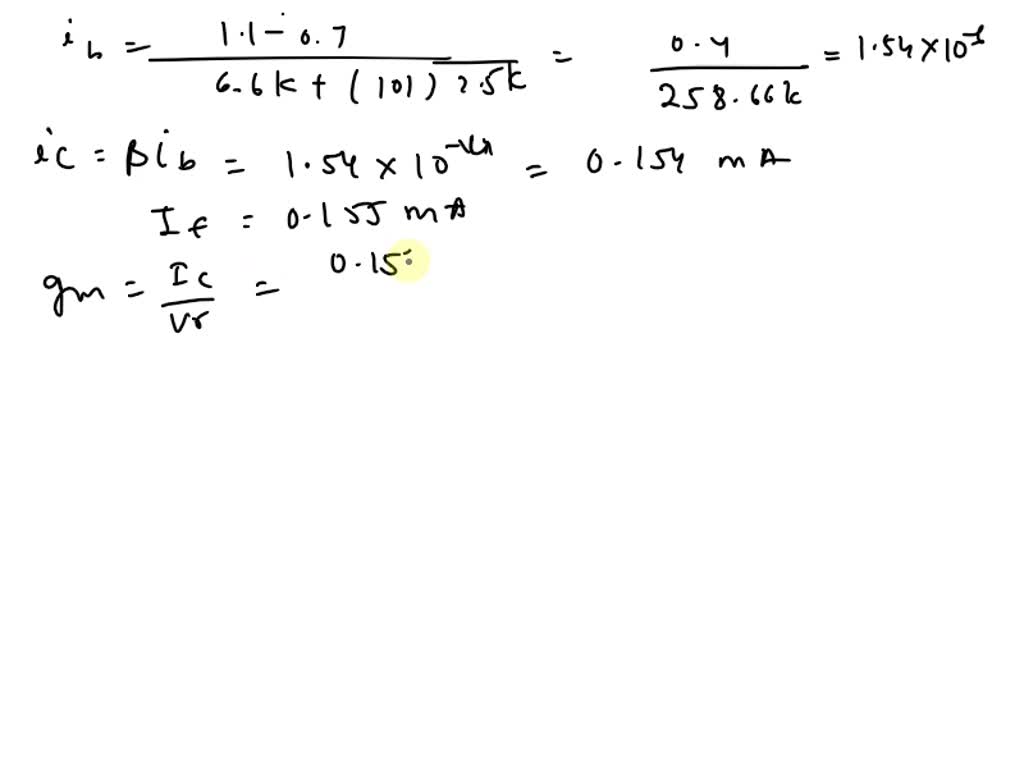 i_b = (1.1 - 0.7) / (6.6k + (101) 2.5k) = 0.4 / 258.66k = 1.54 × 10
ic = βi_b = 1.54 × 10 = 0.154 mA
I_E = 0.155 mA
gm = Ic / Vr = 0.15